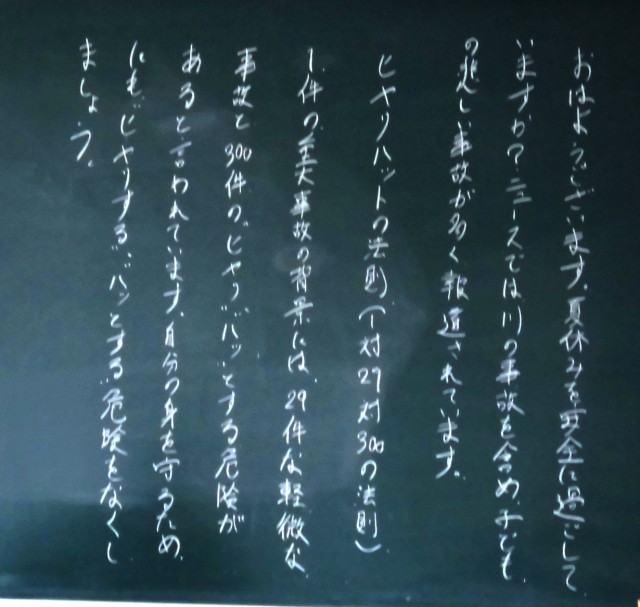 おはようございます。夏休みを安全に過ごして
いますか？ニュースでは川の事故を含め、子ども
の悲しい事故が多く報道されています。
ヒヤリハットの法則（1対29対300の法則）
1件の重大事故の背景には、29件な軽微な
事故と300件の“ヒヤリ”“ハッ”とする危険が
あると言われています。自分の身を守るため
にも“ヒヤリする”、“ハッとする”危険をなくし
ましょう。